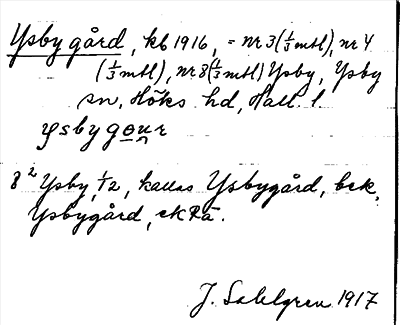 Ysby gård, kb 1916, = nr 3 (1/3 mtl), nr 4
(1/3 mtl), nr 8 (1/3 mtl) Ysby, Ysby
sn, Höks hd, Hall. l.
ysbygour
8² Ysby, 1/2, kallas Ysbygård, bek,
Ysbygård, ekRä.
J. Sahlgren 1917